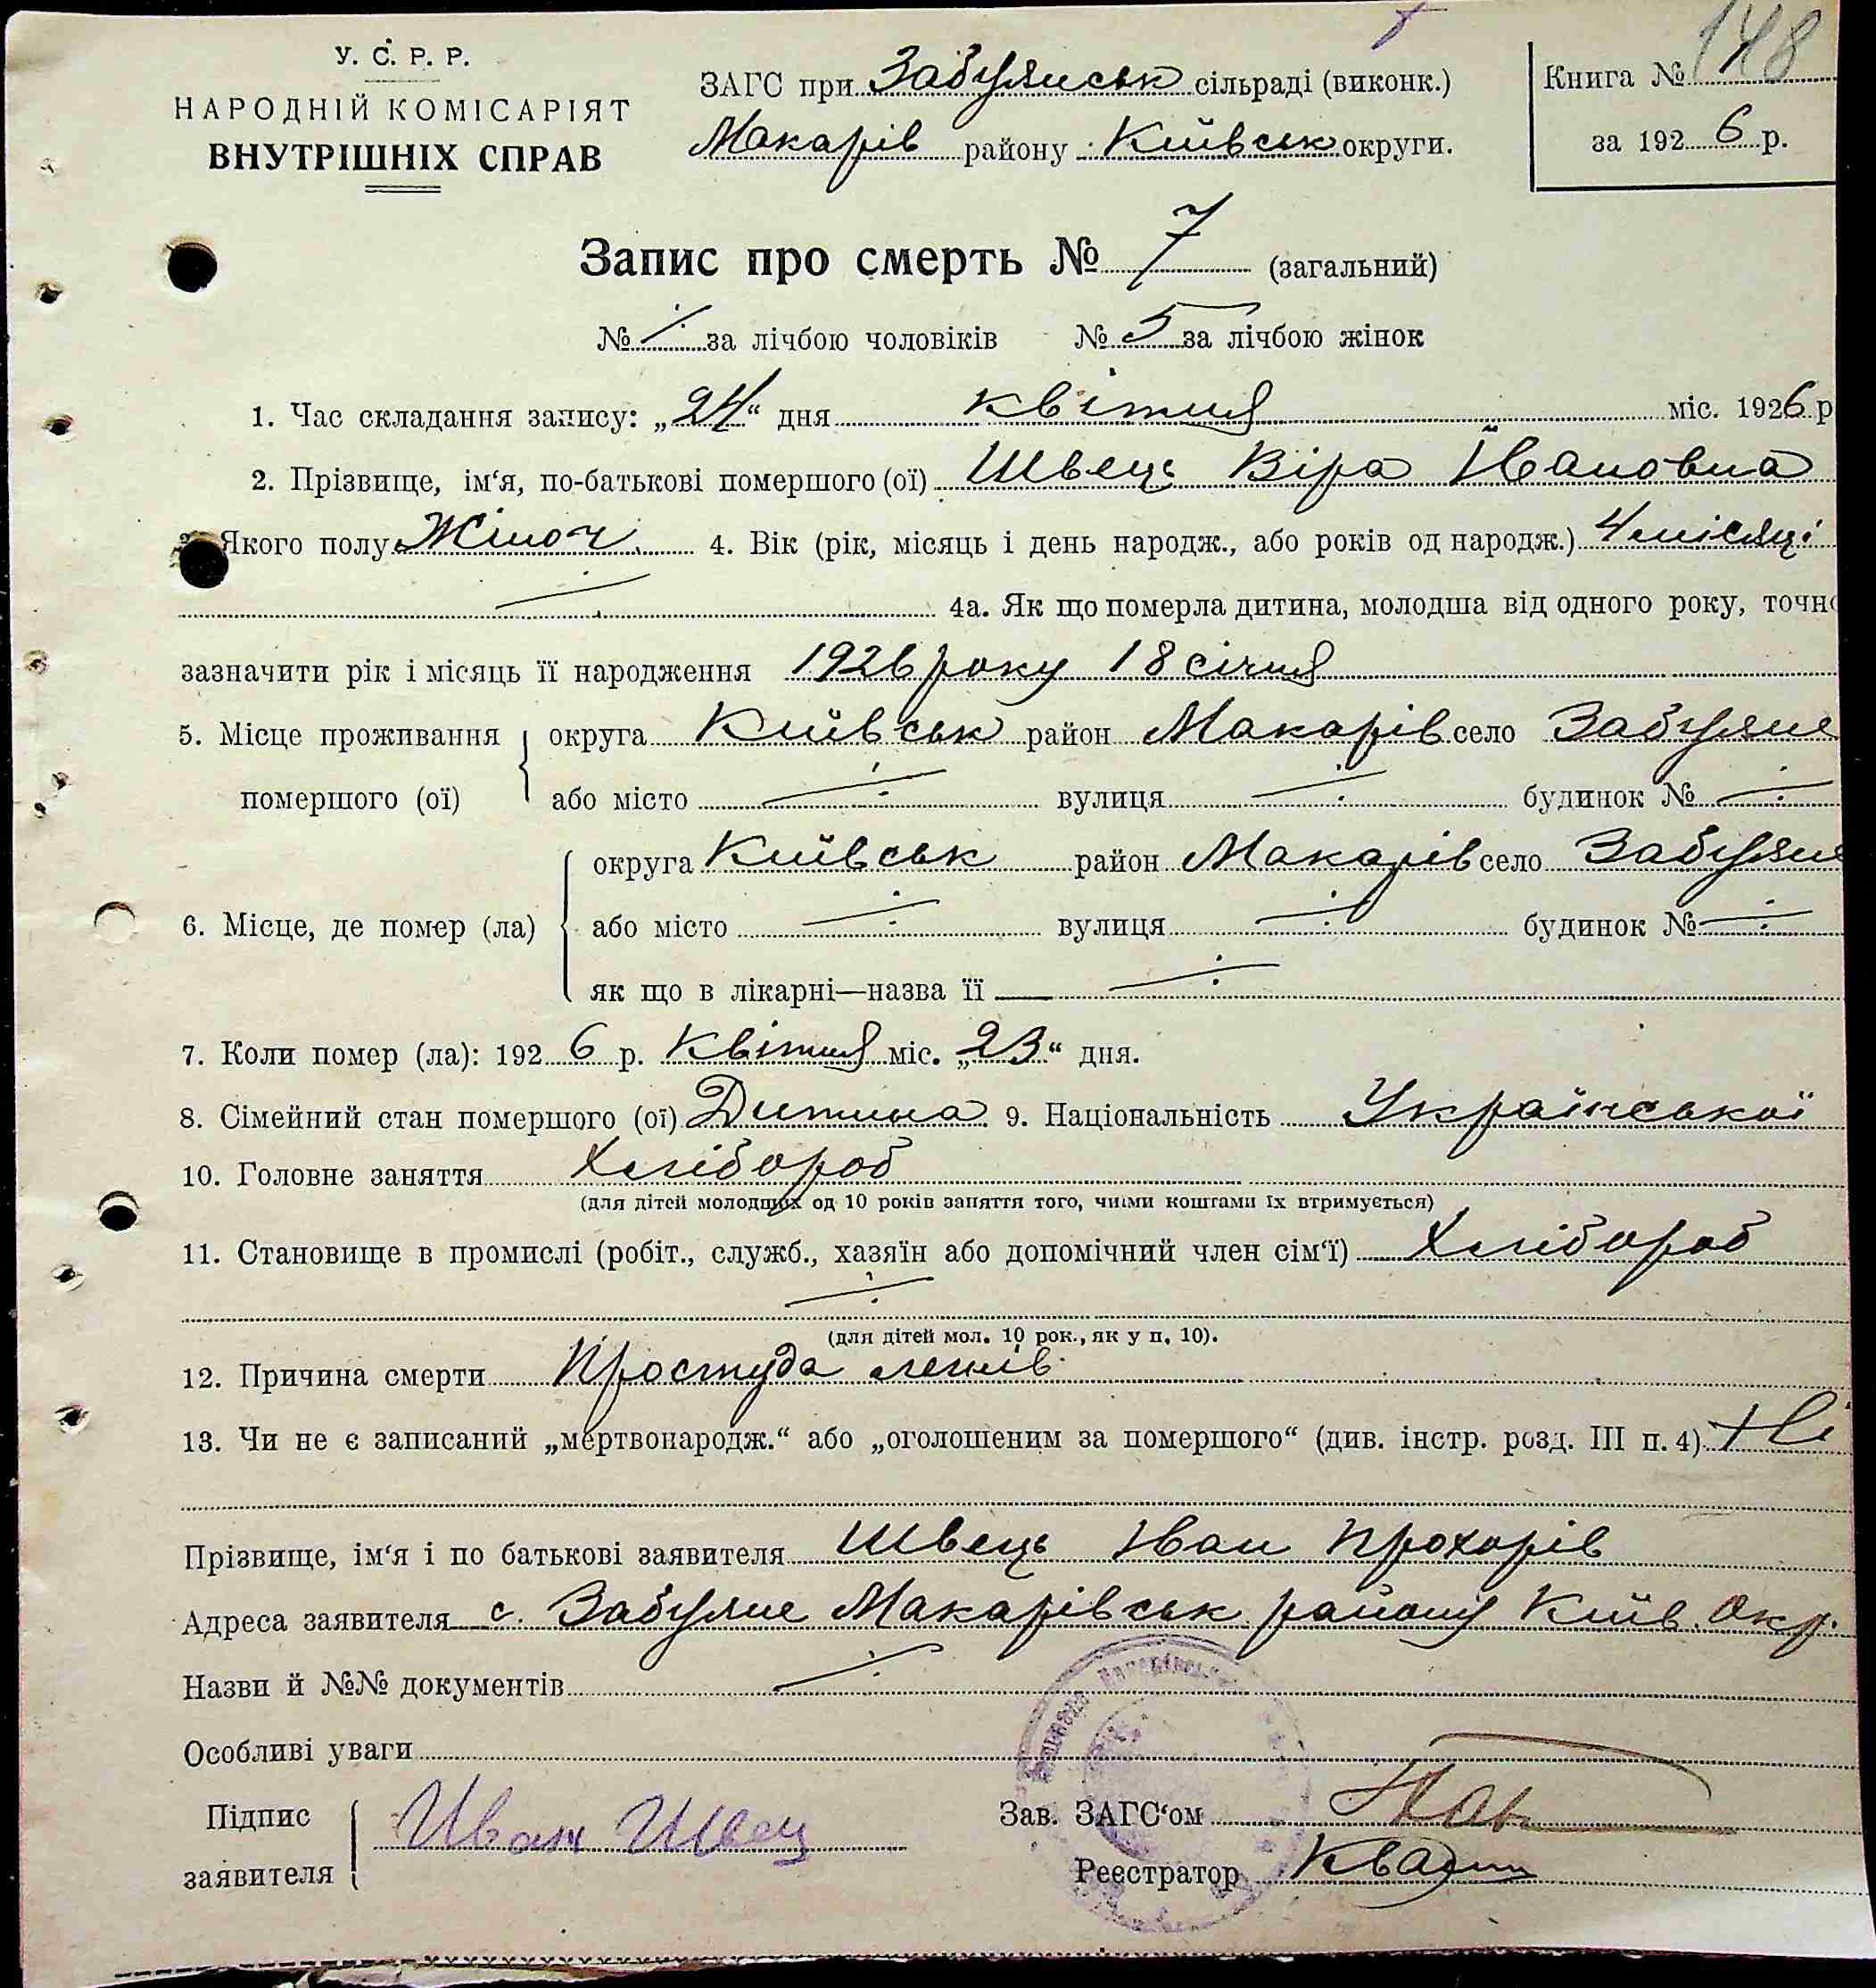 У. С. Р. Р.
НАРОДНІЙ КОМІСАРІЯТ
ВНУТРІШНІХ СПРАВ
ЗАГС при Забуянськ сільраді (виконк.)
Макарів району Київськ округи.
Книга № 148
за 1926 р.
Запис про смерть № 7 (загальний)
№ за лічбою чоловіків № 5 за лічбою жінок
1. Час складання запису: „24“ дня квітня міс. 1926 р
2. Прізвище, ім‘я, по-батькові помершого (ої) Швець Віра Івановна
Якого полу Жіноч. 4. Вік (рік, місяць і день народж., або років од народж.) 4 місяці
4а. Як що померла дитина, молодша від одного року, точно
зазначити рік і місяць її народження 1926 року 18 січня
5. Місце проживання помершого (ої) округа Київськ район Макарів село Забуяне
або місто вулиця будинок №
6. Місце, де помер (ла) округа Київськ район Макарів село Забуяне
або місто вулиця будинок №
як що в лікарні—назва її
7. Коли помер (ла): 1926 р. Квітня міс. „23“ дня.
8. Сімейний стан помершого (ої) Дитина 9. Національність Української
10. Головне заняття Хлібороб
(для дітей молодших од 10 років заняття того, чиїми коштами їх втримується)
11. Становище в промислі (робіт., служб., хазяїн або допомічний член сім‘ї) Хлібороб
(для дітей мол. 10 рок., як у п. 10).
12. Причина смерти Простуда легків
13. Чи не є записаний „мертвонародж.“ або „оголошеним за помершого“ (див. інстр. розд. III п. 4) Ні
Прізвище, ім‘я і по батькові заявителя Швець Іван Прохорів
Адреса заявителя с. Забуяне Макарівськ району Київ. Окр.
Назви й №№ документів
Особливі уваги
Підпис заявителя Иван Швец
Зав. ЗАГС‘ом
Реєстратор